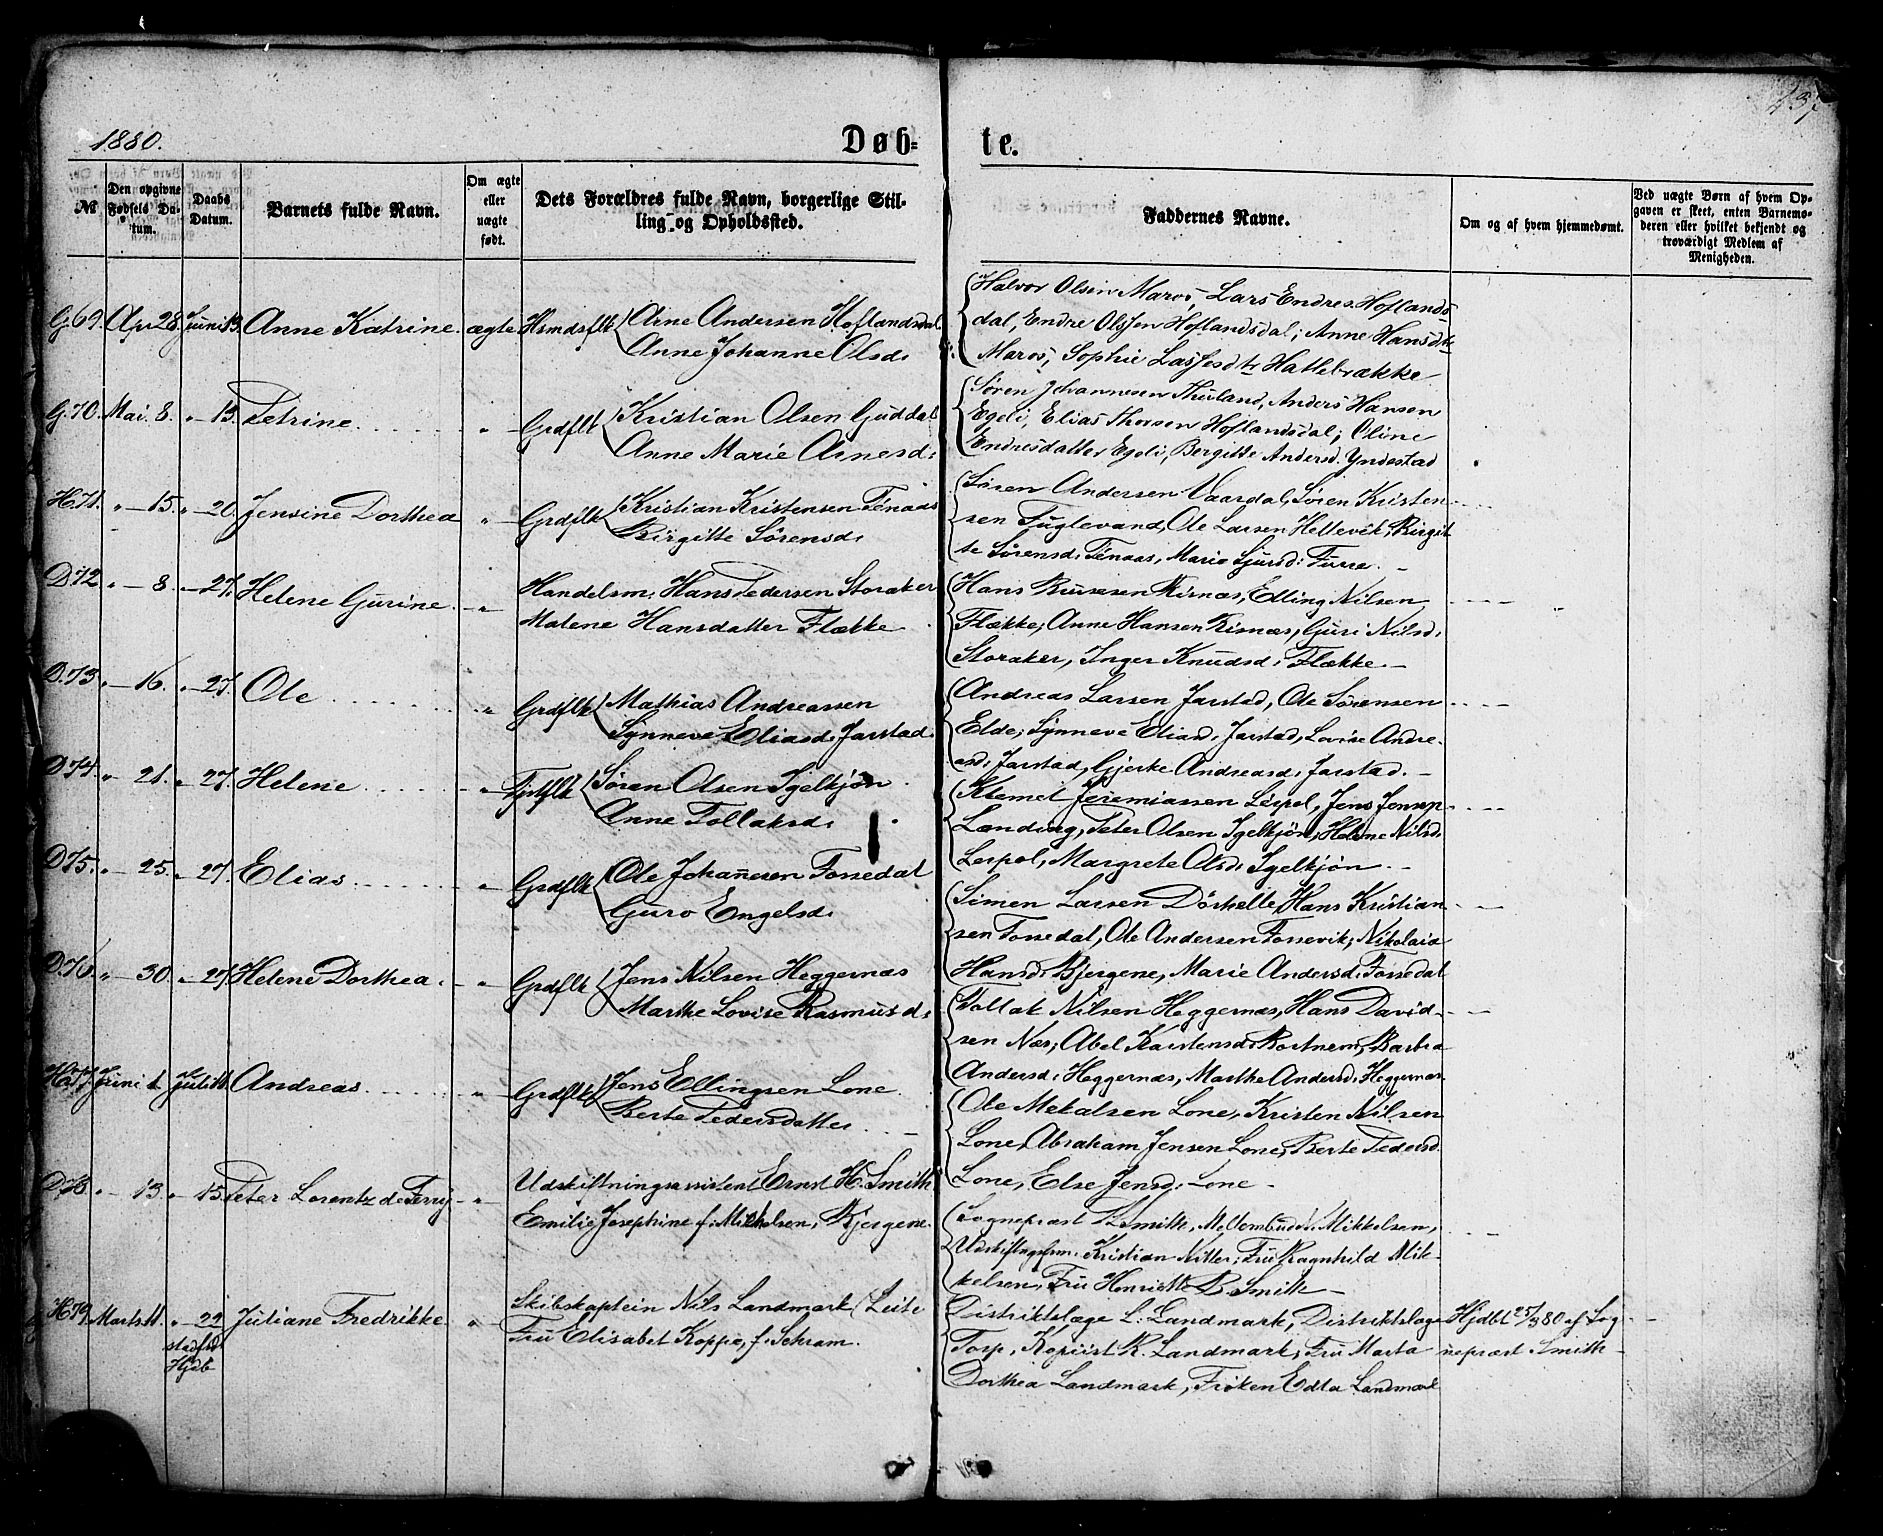 1880.
Døb-
te.
137
№
Den opgivne Fødsels Datum.
Daabs Datum.
Barnets fulde Navn.
Om ægte eller uægte født.
Dets Forældres fulde Navn, borgerlige Stilling og Opholdssted.
Faddernes Navne.
Om og af hvem hjemmedøbt.
Ved uægte Børn af hvem Opgaven er skeet, enten Barnemoderen eller hvilket bekjendt og troværdigt Medlem af Menigheden.
G.69. Apr 28. Juni 13. Anne Katrine. ægte. Hsmdsflk Arne Andersen Hoflandsdal
Anne Johanne Olsd:
Halvor Olsen Maros, Lars Endres. Hoflands-
dal, Endre Olssen Hoflandsdal; Anne Hansdtr
Maros, Sophie Lassesdtr Hatlebrække
G.70. Mai. 8. " - 13. Petrine. " Grdflk Kristian Olsen Guddal
Anne Marie Arnesd:
Søren Johannesen Thuland, Anders Hansen
Egeli, Elias Thorsen Hoflandsdal; Oline
Endresdatter Egeli, Bergitte Andersd. Yndestad
H.71. " - 15. " - 20. Jensine Dorthea " Grdflk Kristian Kristensen Tenaas
Birgitte Sørensd:
Søren Andersen Vaardal, Søren Kristen-
sen Fuglevand, Ole Larsen Hellevik, Birgit-
te Sørensd: Tenaas, Marie Sjursd: Furre. -
D.72. " - 8. " - 27. Helene Gurine. " Handelsm: Hans Pedersen Storaker
Malene Hansdatter Flække
Hans Risnæs, Elling Nilsen
Flække, Anne Hansen Risnæs, Guri Nilsd:
Storaker, Inger Knudsd: Flække. -
D.73. " - 16. " - 27. Ole " Grdflk Mathias Andreassen
Synneve Eliasd: Jarstad.
Andreas Larsen Jarstad, Ole Sørensen
Elde, Synneve Eliasd: Jarstad, Lovise Andre-
asd: Jarstad, Gjerke Andreasd: Jarstad. -
D.74. " - 21. " 27. Helene " Søren Olsen Igelkjøn
Anne Tollaksd:
Klemet Jeremiassen Leirpol, Jens Jensen
Lænding, Peter Olsen Igelkjøn, Helene Nilsd:
Leirpol, Margrete Olsd: Igelkjøn. -
D.75. " - 25. " - 27. Elias " Grdflk Ole Johannesen Fossedal
Guro Engelsd:
Simen Larsen Dørhelle, Hans Kristian-
sen Fossedal, Ole Andersen Fossevik, Nikolaia
Hansd: Bjergene, Marie Andersd: Fossedal
D.76. " - 30. " - 27. Helene Dorthea. " Grdflk Jens Nilsen Heggernæs
Marthe Lovise Rasmusd:
Tollak Nilsen Heggernæs, Hans David-
sen Næs, Abel Karstensd: Bortnem, Barbra
Andersd: Heggernæs, Marthe Andersd: Heggernæs
H.77. Juni 1. Juli 11. Andreas. " Grdflk Jens Ellingsen Lone
Berte Pedersdatter
Ole Mekalsen Lone, Kristen Nilsen
Lone, Abraham Jensen Lone, Berte Pedersd.
Lone, Else Jensd: Lone -
D.78. " - 13. " 15. Peter Lorentz de Ferry " Udskiftningsassistent Ernst H. Smith
Emilie Josephine f: Mikkelsen, Bjergene.
Sognepræst Smith, Mikkelsen,
Kristian Nitter, Fru Ragnhild Mik-
kelsen, Fru Henriette B. Smith -
H.79. Marts 11. " - 22 Juliane Fredrikke " Skibskaptein Nils Landmark (Leite
stadf.
Hjdb
Fru Elisabet Koppe, f. Schram.
Distriktslæge L: Landmark, Distriktslæge
Torp, Kopiist R. Landmark, Fru Marta
Dorthea Landmark, Frøken Edta Landmark
Hjdbt 25/3 80 af Sog-
nepræst Smith -